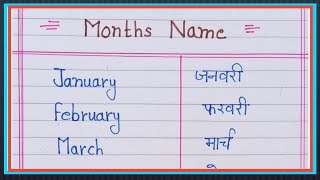 Months Name
January जनवरी
February फरवरी
March मार्च